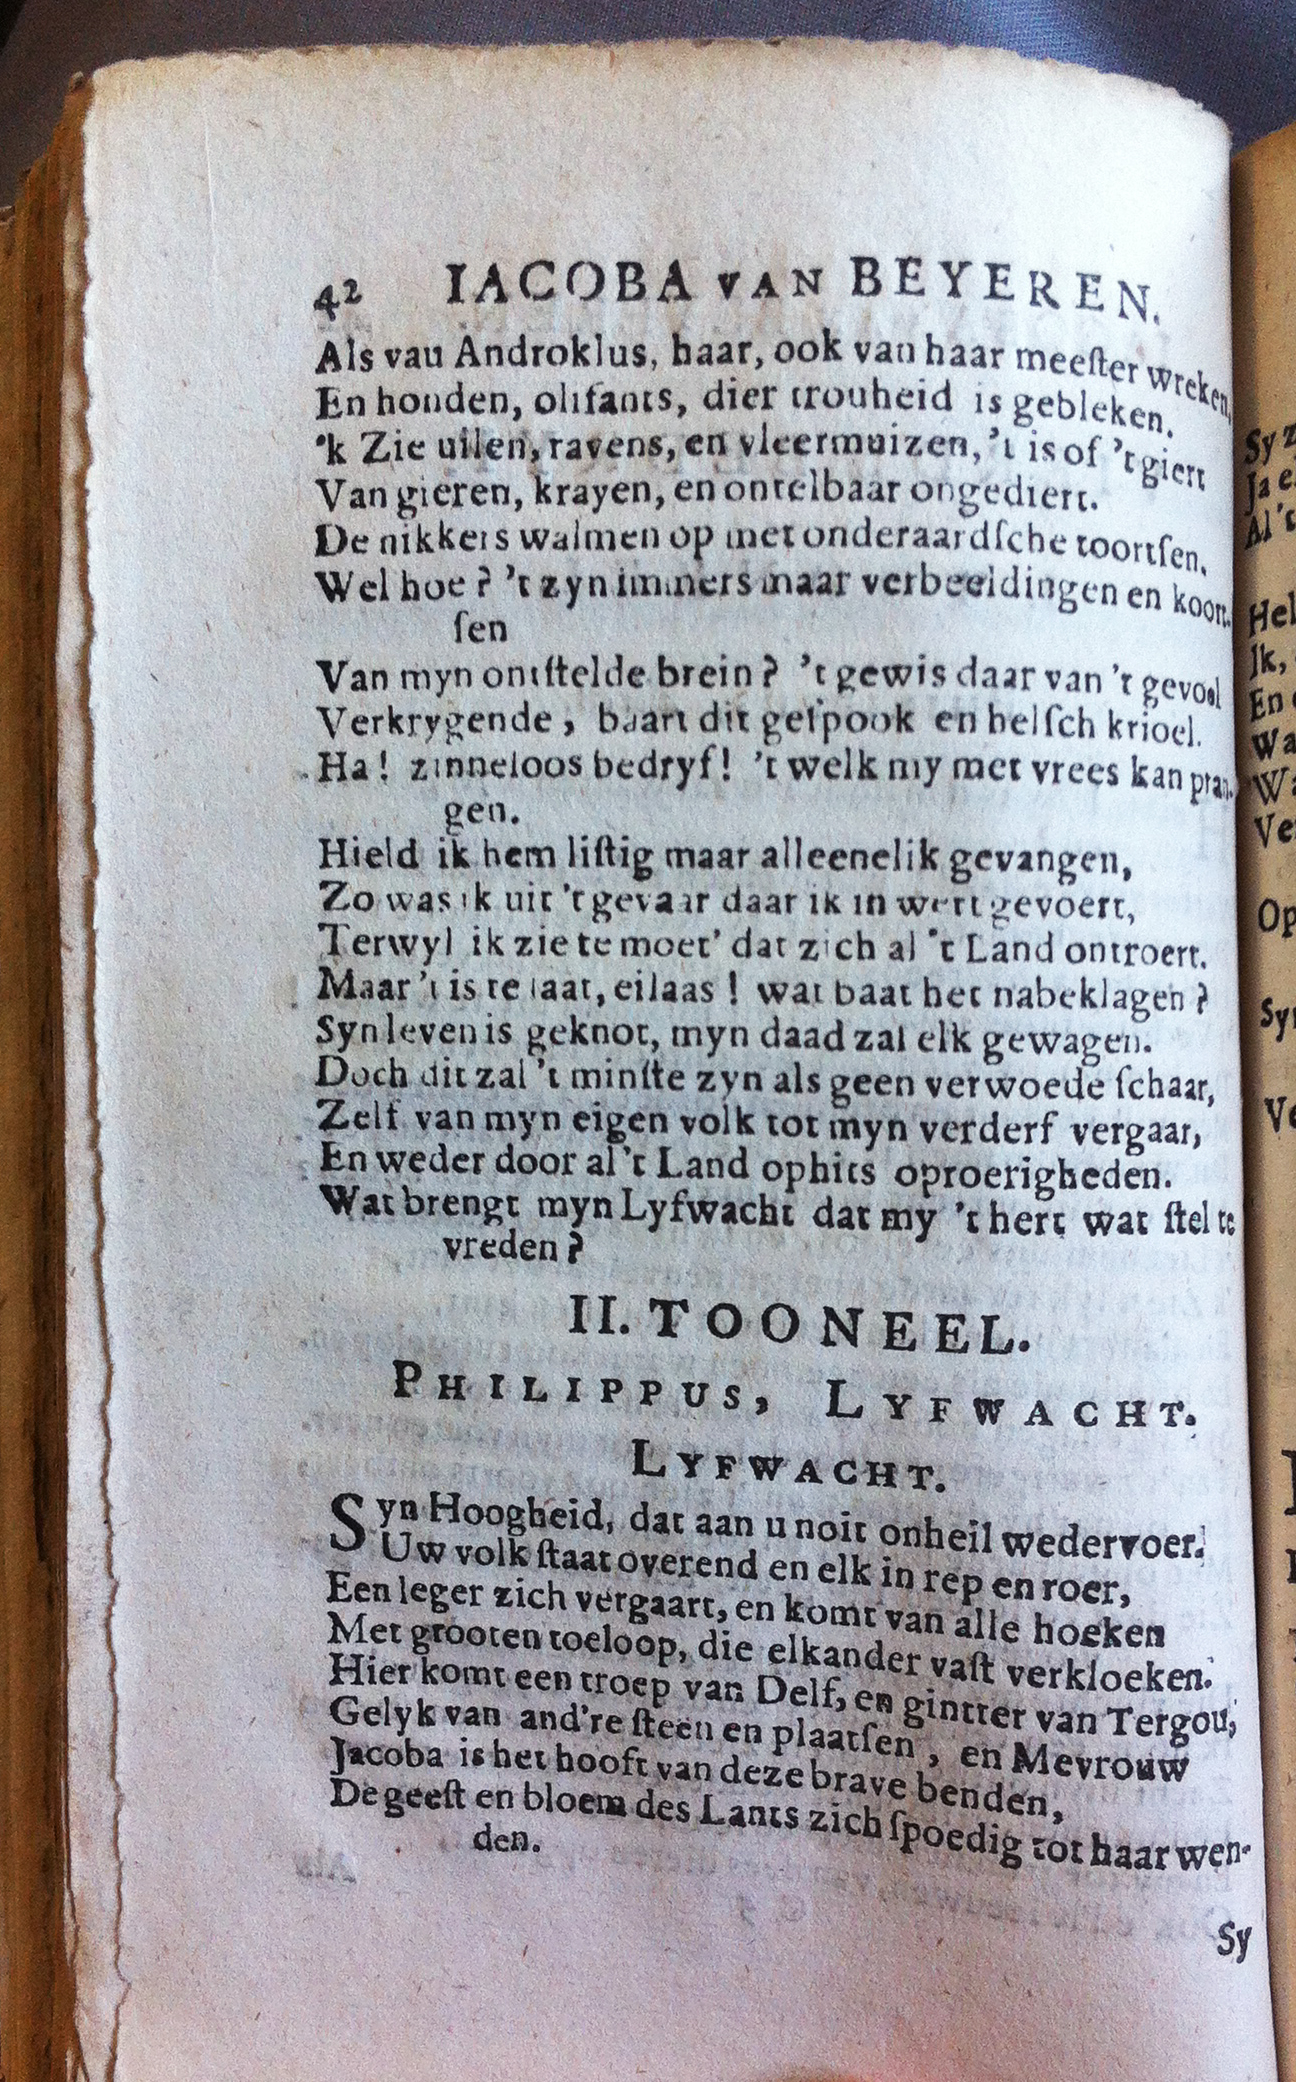 42 IACOBA VAN BEYEREN.
Als vau Androklus, haar, ook van haar meeſter wreken,
En honden, olifants, dier trouheid is gebleken.
'k Zie uilen, ravens, en vleermuizen, 't is of 't giert
Van gieren, krayen, en ontelbaar ongediert.
De nikkers walmen op met onderaardſche toortſen.
Wel hoe? 't zyn immers maar verbeeldingen en koort-
ſen
Van myn ontſtelde brein? 't gewis daar van 't gevoel
Verkrygende, baart dit geſpook en helſch krioel.
Ha! zinneloos bedryf! 't welk my met vrees kan pran-
gen.
Hield ik hem liſtig maar alleenelik gevangen,
Zo was ik uit 't gevaar daar ik in wert gevoert,
Terwyl ik zie te moet' dat zich al 't Land ontroert.
Maar 't is te laat, eilaas! wat baat het nabeklagen?
Syn leven is geknot, myn daad zal elk gewagen.
Doch dit zal 't minſte zyn als geen verwoede ſchaar,
Zelf van myn eigen volk tot myn verderf vergaar,
En weder door al 't Land ophits oproerigheden.
Wat brengt myn Lyfwacht dat my 't hert wat ſtel te
vreden?
II. TOONEEL.
PHILIPPUS, LYFWACHT.
LYFWACHT.
Syn Hoogheid, dat aan u noit onheil wedervoer.
Uw volk ſtaat overend en elk in rep en roer,
Een leger zich vergaart, en komt van alle hoeken
Met grooten toeloop, die elkander vaſt verkloeken.
Hier komt een troep van Delf, en gintter van Tergou,
Gelyk van and're ſteen en plaatſen, en Mevrouw
Jacoba is het hooft van deze brave benden,
De geeſt en bloem des Lants zich ſpoedig tot haar wen-
den.
Sy
Sy
Ja
Al 't
Hel
Ik,
En
Wa
Wa
Ve
Op
Syn
Ve